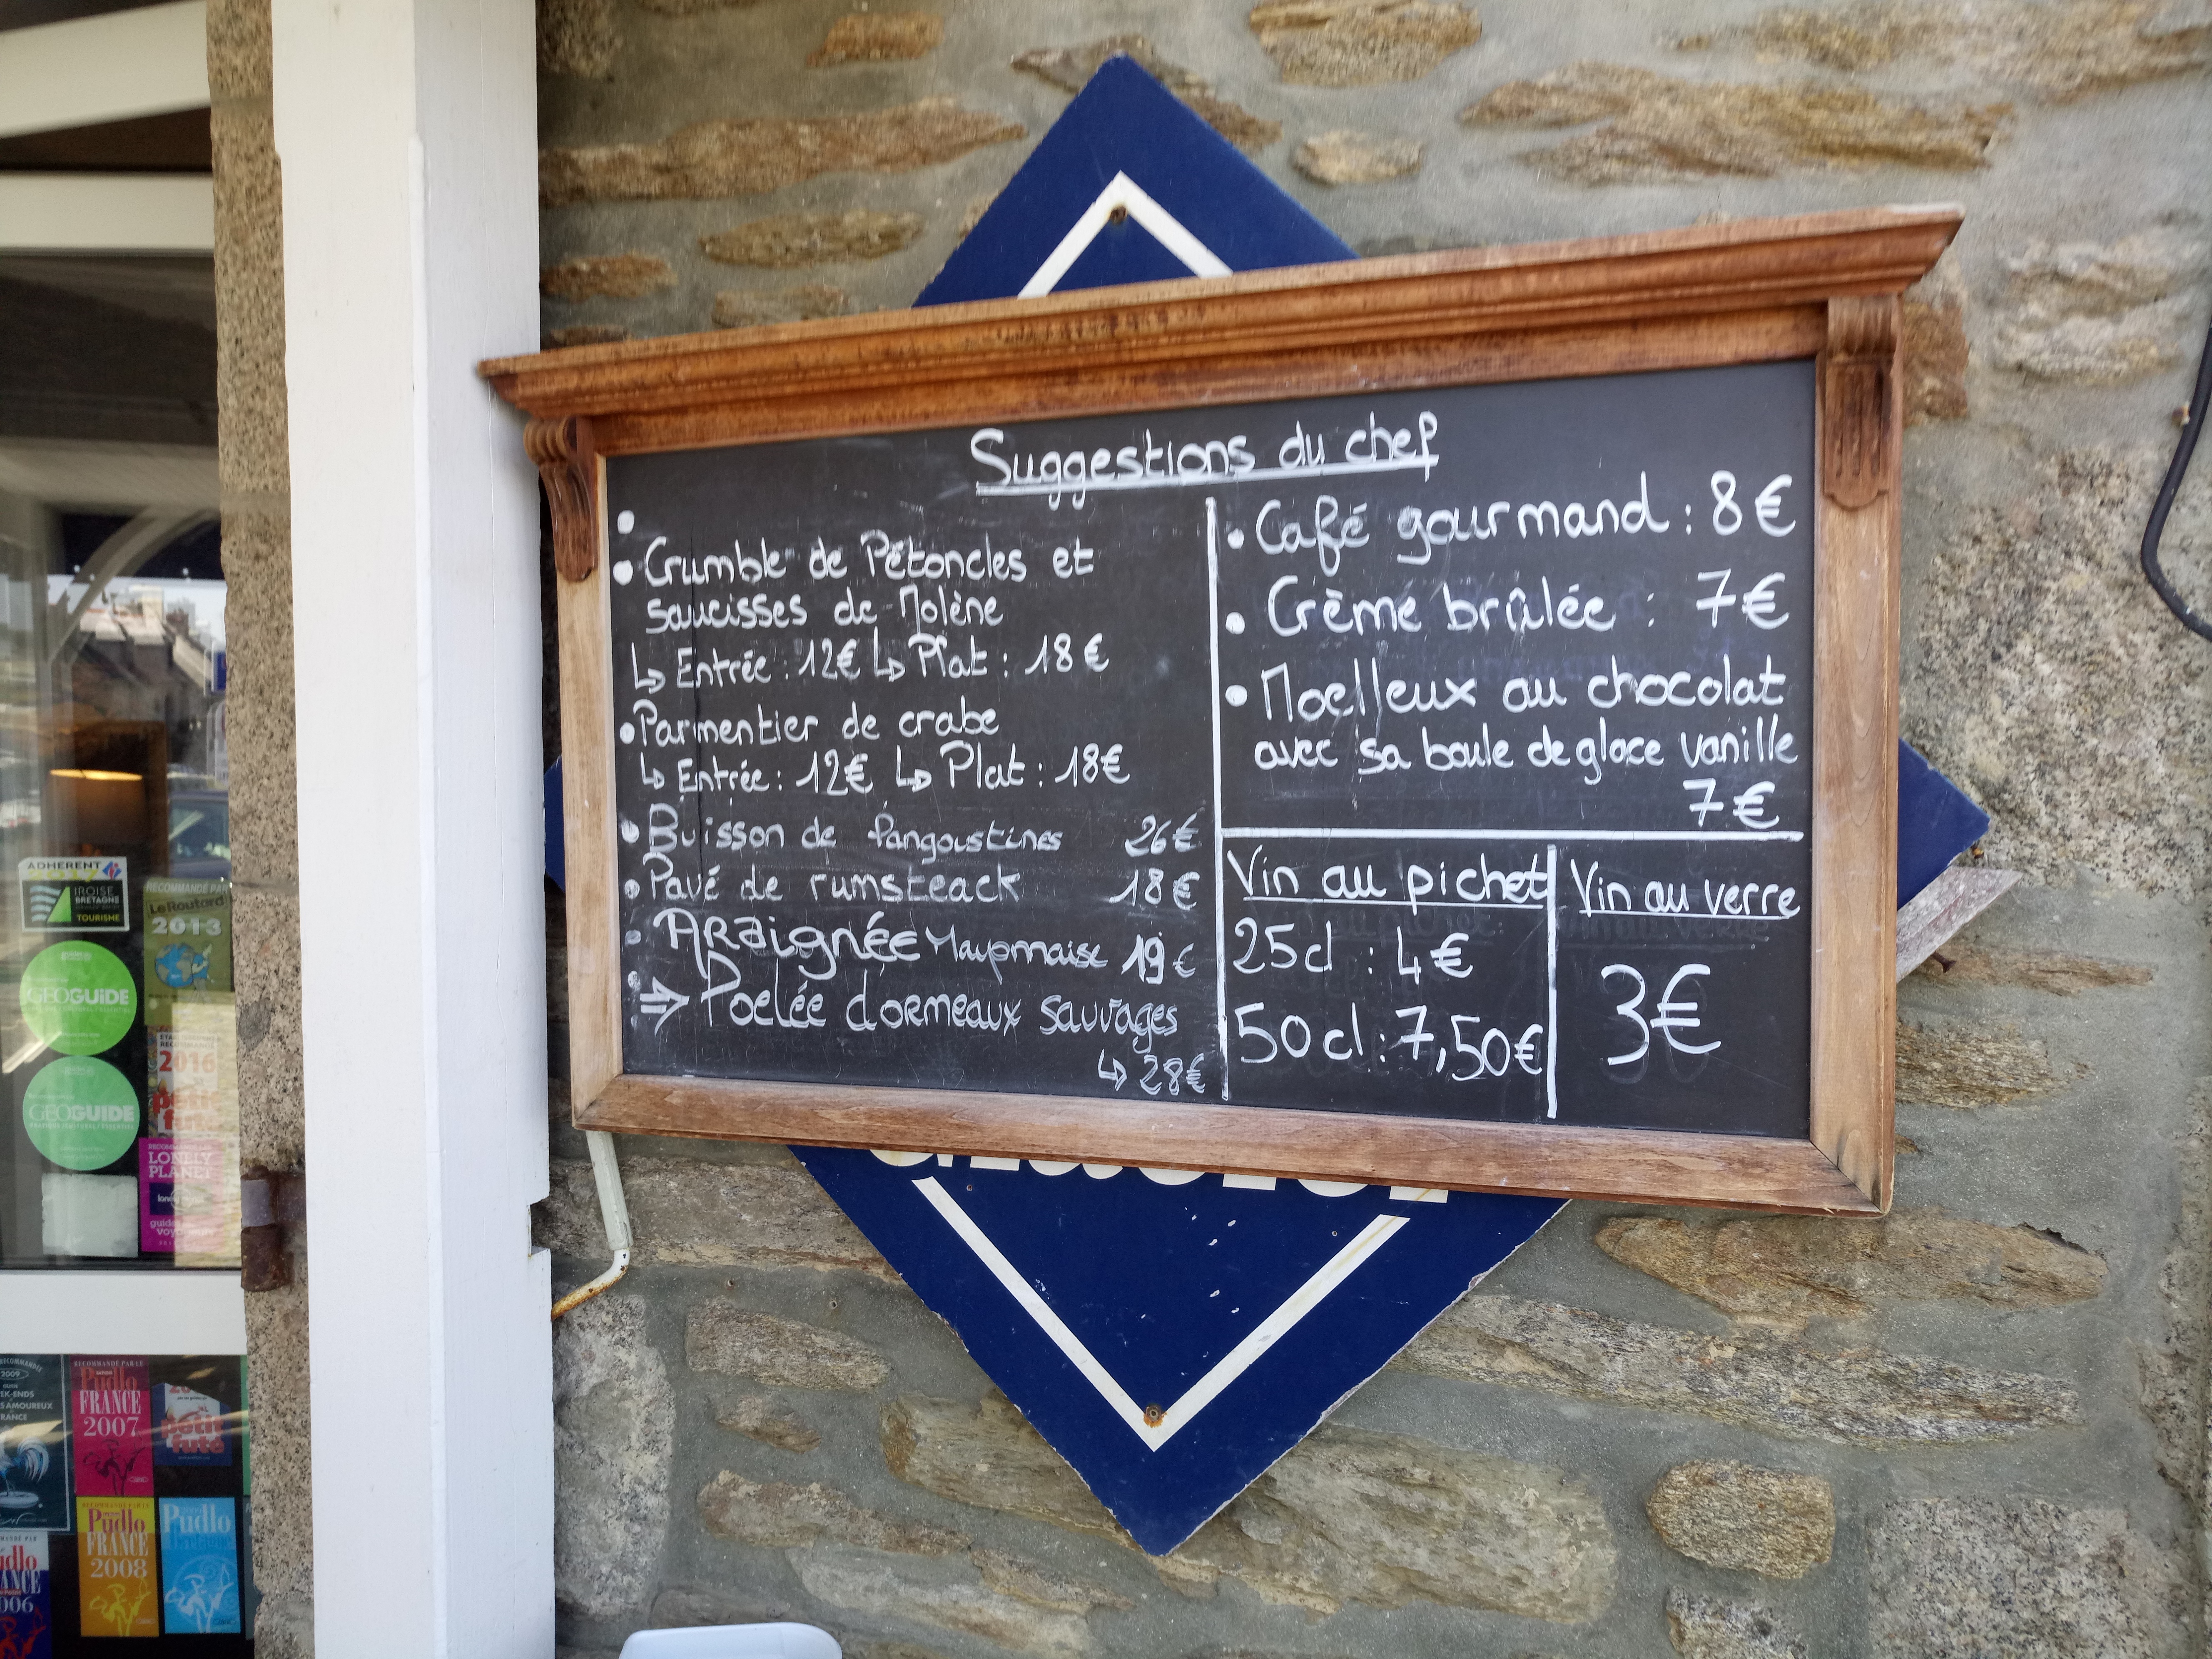 Suggestions du chef
• Crumble de Pétoncles et
saucisses de Molène
↳ Entrée : 12€ ↳ Plat : 18€
• Parmentier de crabe
↳ Entrée : 12€ ↳ Plat : 18€
• Buisson de langoustines 26€
• Pavé de rumsteack 18€
• Araignée Mayonnaise 19€
⇒ Poelée d'ormeaux sauvages
↳ 28€
• Café gourmand : 8€
• Crème brûlée : 7€
• Moelleux au chocolat
avec sa boule de glace vanille
7€
Vin au pichet
25cl : 4€
50cl : 7,50€
Vin au verre
3€
ADHERENT
2017
IROISE
BRETAGNE
TOURISME
RECOMMANDÉ PAR
Le Routard
2013
GEOGUIDE
GEOGUIDE
2016
petit
futé
LONELY
PLANET
2009
FRANCE
RECOMMANDÉ PAR LE
Pudlo
FRANCE
2007
petit
futé
Pudlo
FRANCE
2008
Pudlo